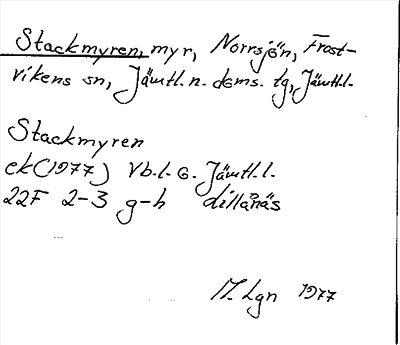 Stackmyren, myr, Norrsjön, Frost-
vikens sn, Jämtl. n. doms. tg, Jämtl.l.
Stackmyren
ek (1977) Vb.l. o. Jämtl.l.
22F 2-3 g-h dillånäs
Lgn 1977